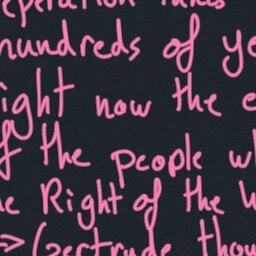 eperation takes
hundreds of ye
ight now the e
f the people wh
e Right of the w
=> Gertrude thou